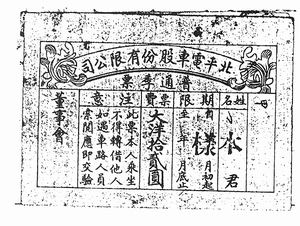 北平電車股份有限公司
普通季票
姓名
君
樣本
期限
自
月初起
至
年
月底止
票費
大洋拾貳圓
注意
此票本人乘坐
不得轉借他人
如遇車路人員
索閱應即交驗
董事會